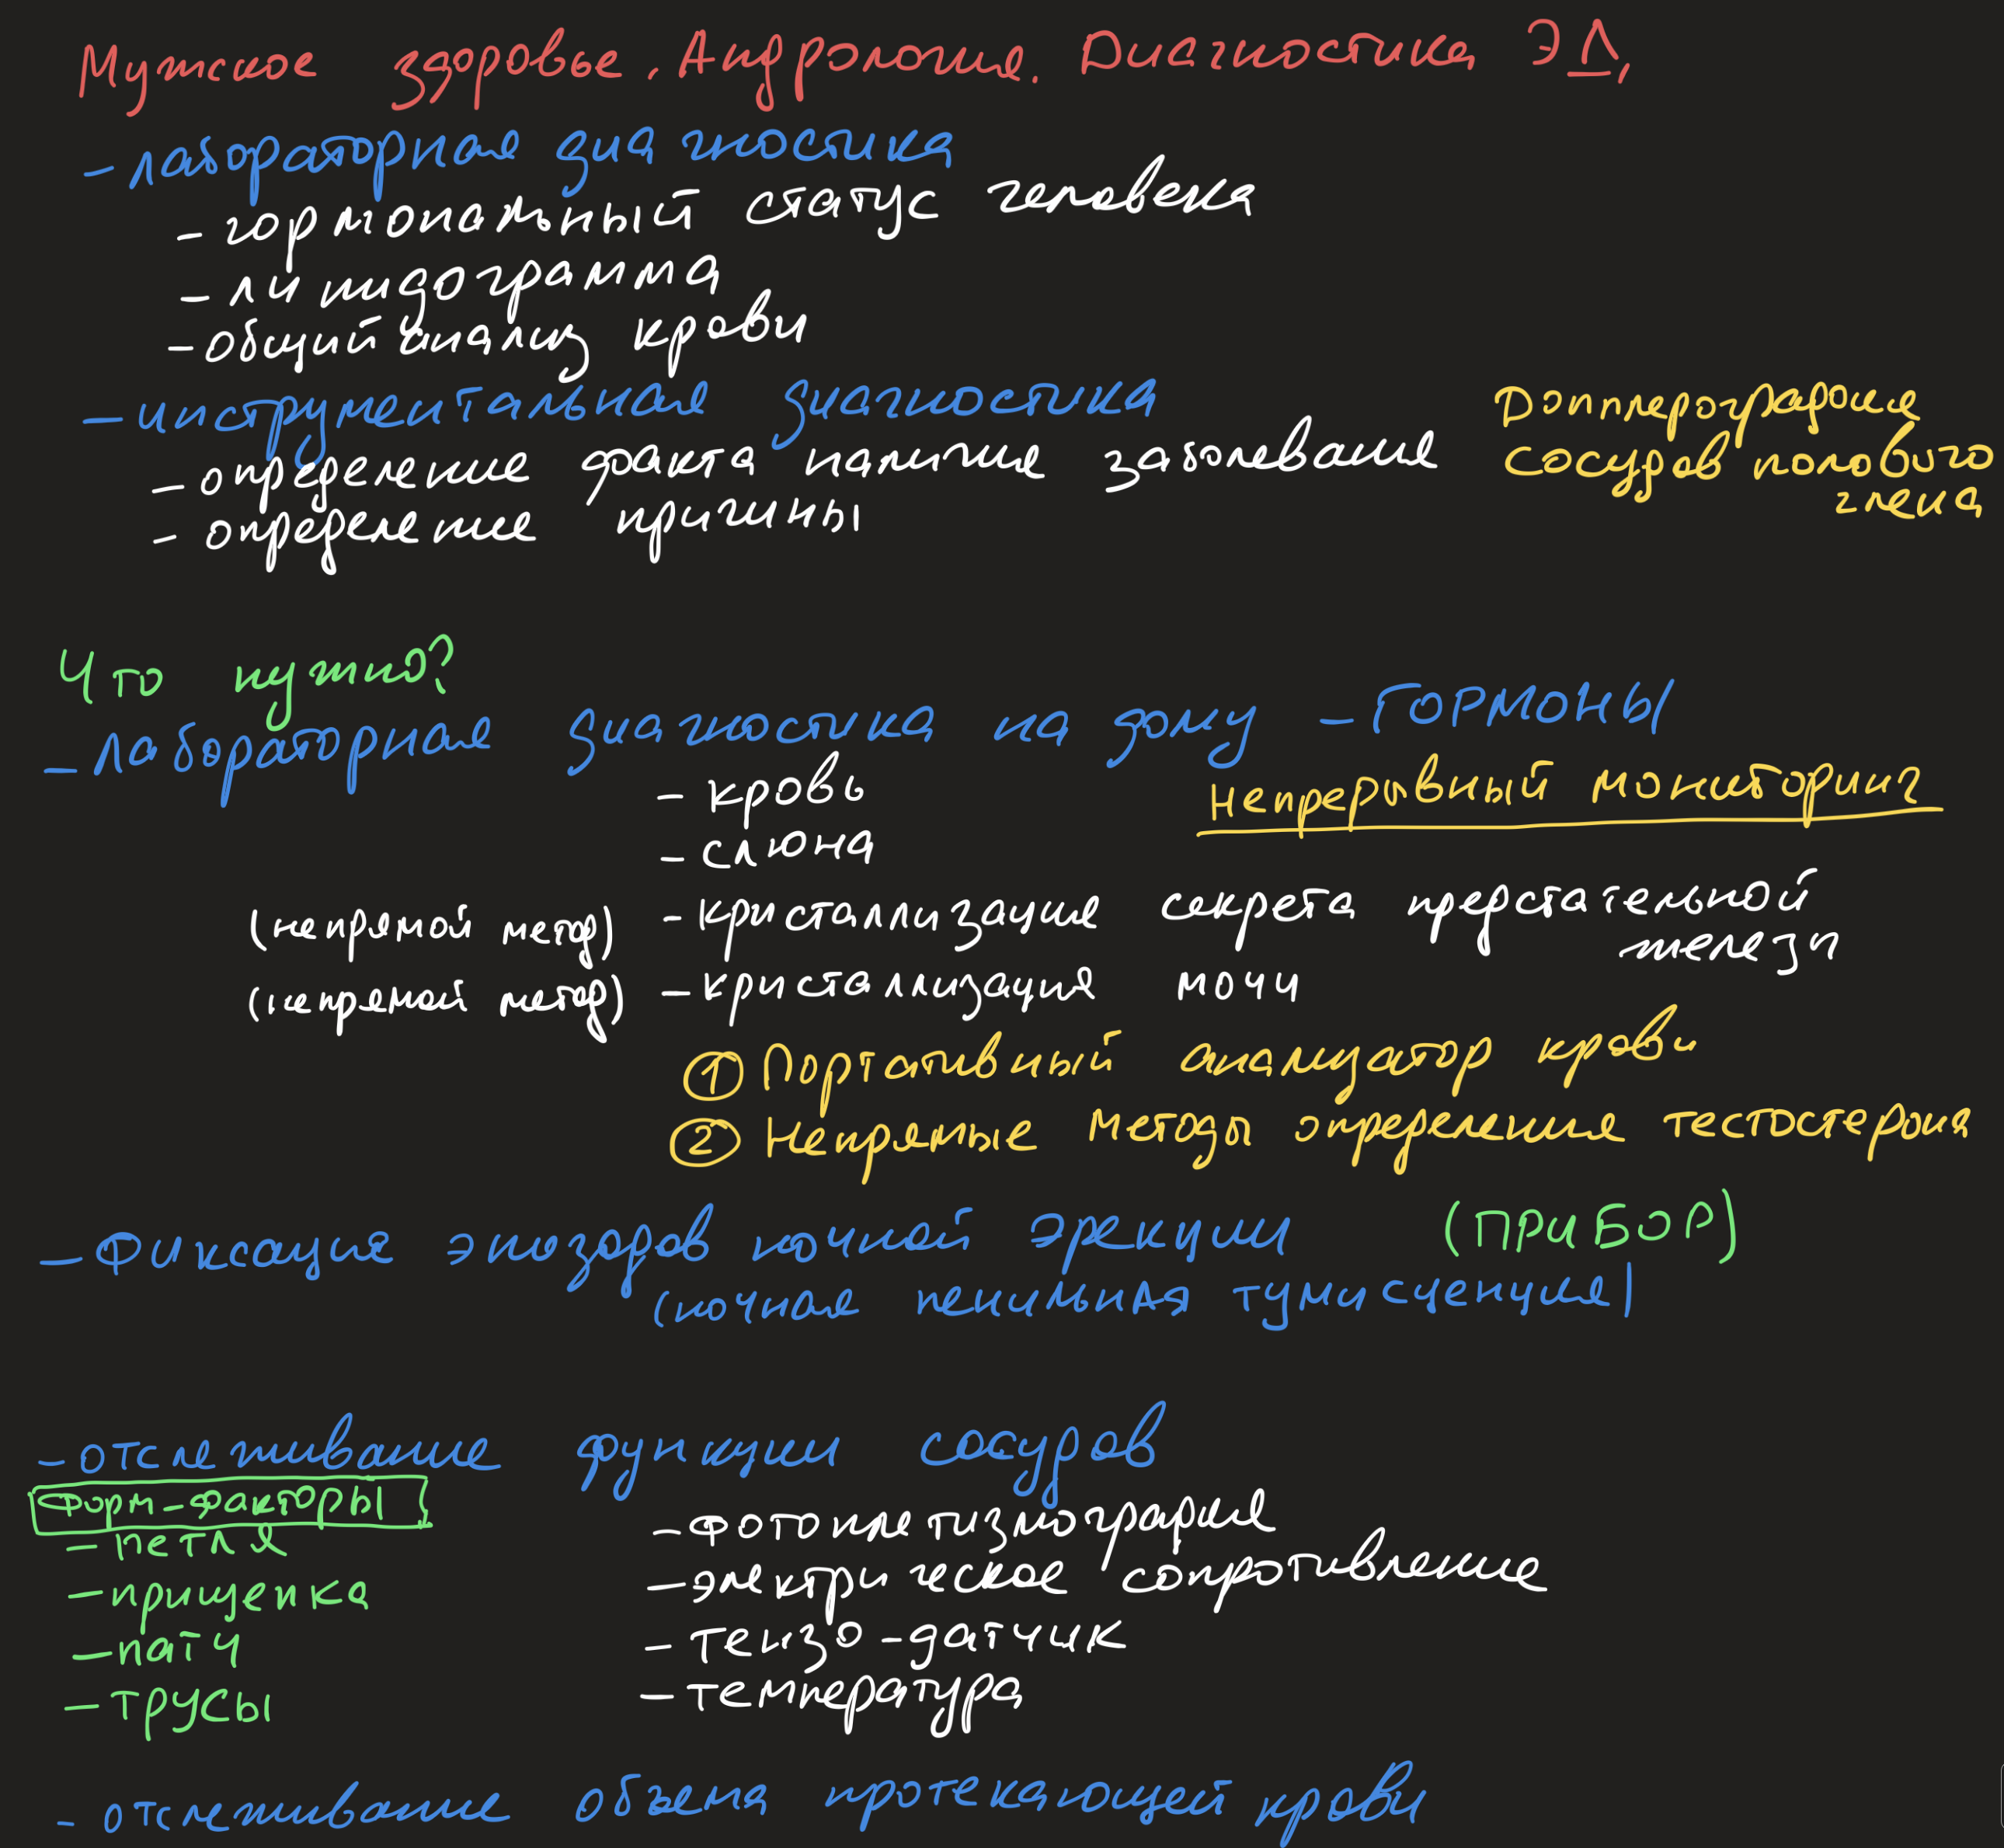 Мужское здоровье. Андрология. Диагностика ЭД.
- лабораторная диагностика
- гормональный статус человека
- липидограмма
- общий анализ крови
- инструментальная диагностика
Допплерография
- определение факта наличия заболевания
сосудов полового
члена
- определение причины
Что нужно?
- лабораторная диагностика на дому - ГОРМОНЫ
- кровь
Непрерывный мониторинг
- слюна
(непрямой метод) - кристаллизация секрета предстательной
железы
(непрямой метод) - кристаллизация мочи
① Портативный анализатор крови
② Непрямые методы определения тестостерона
- Фиксация эпизодов ночной эрекции (ПРИБОР)
(ночная пенильная тумисценция)
- отслеживание функции сосудов
Форм-факторы
- фотоплетизмография
- петля
- электрическое сопротивление
- прищепка
- тензо-датчик
- патч
- температура
- трусы
- отслеживание объема протекающей крови